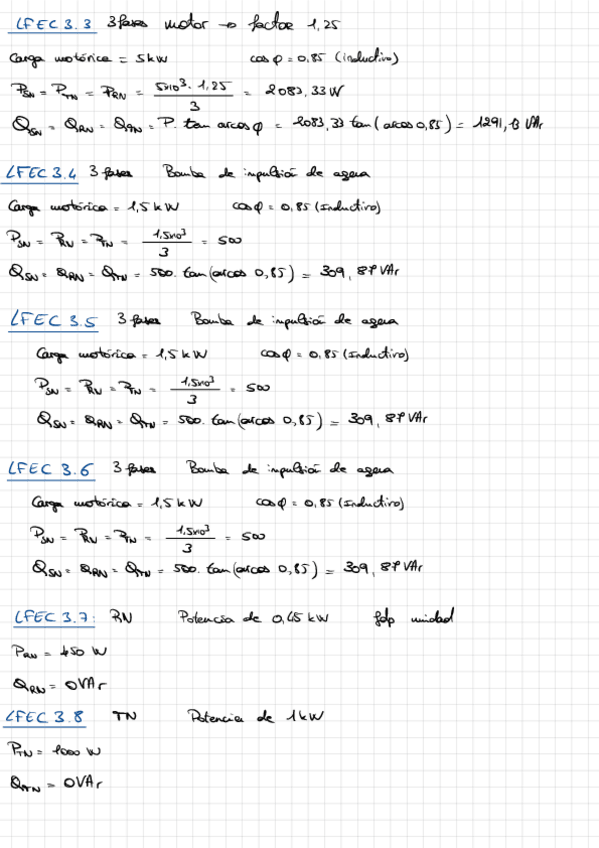 LFEC 3.3 3 fases motor → factor 1,25
Carga motórica = 5kW cos φ = 0,85 (inductivo)
P_SN = P_TN = P_RN = 5x10³ · 1,25 / 3 = 2083,33 W
Q_SN = Q_RN = Q_TN = P. tan arcos φ = 2083,33 tan(arcos 0,85) = 1291,13 VAr
LFEC 3.4 3 fases Bomba de impulsión de agua
Carga motórica = 1,5 kW cos φ = 0,85 (Inductivo)
P_SN = P_RN = P_TN = 1,5x10³ / 3 = 500
Q_SN = Q_RN = Q_TN = 500. tan(arcos 0,85) = 309,87 VAr
LFEC 3.5 3 fases Bomba de impulsión de agua
Carga motórica = 1,5 kW cos φ = 0,85 (Inductivo)
P_SN = P_RN = P_TN = 1,5x10³ / 3 = 500
Q_SN = Q_RN = Q_TN = 500. tan(arcos 0,85) = 309,87 VAr
LFEC 3.6 3 fases Bomba de impulsión de agua
Carga motórica = 1,5 kW cos φ = 0,85 (Inductivo)
P_SN = P_RN = P_TN = 1,5x10³ / 3 = 500
Q_SN = Q_RN = Q_TN = 500. tan(arcos 0,85) = 309,87 VAr
LFEC 3.7: RN Potencia de 0,45 kW fdp unidad
P_RN = 450 W
Q_RN = 0VAr
LFEC 3.8 TN Potencia de 1kW
P_TN = 1000 W
Q_TN = 0VAr